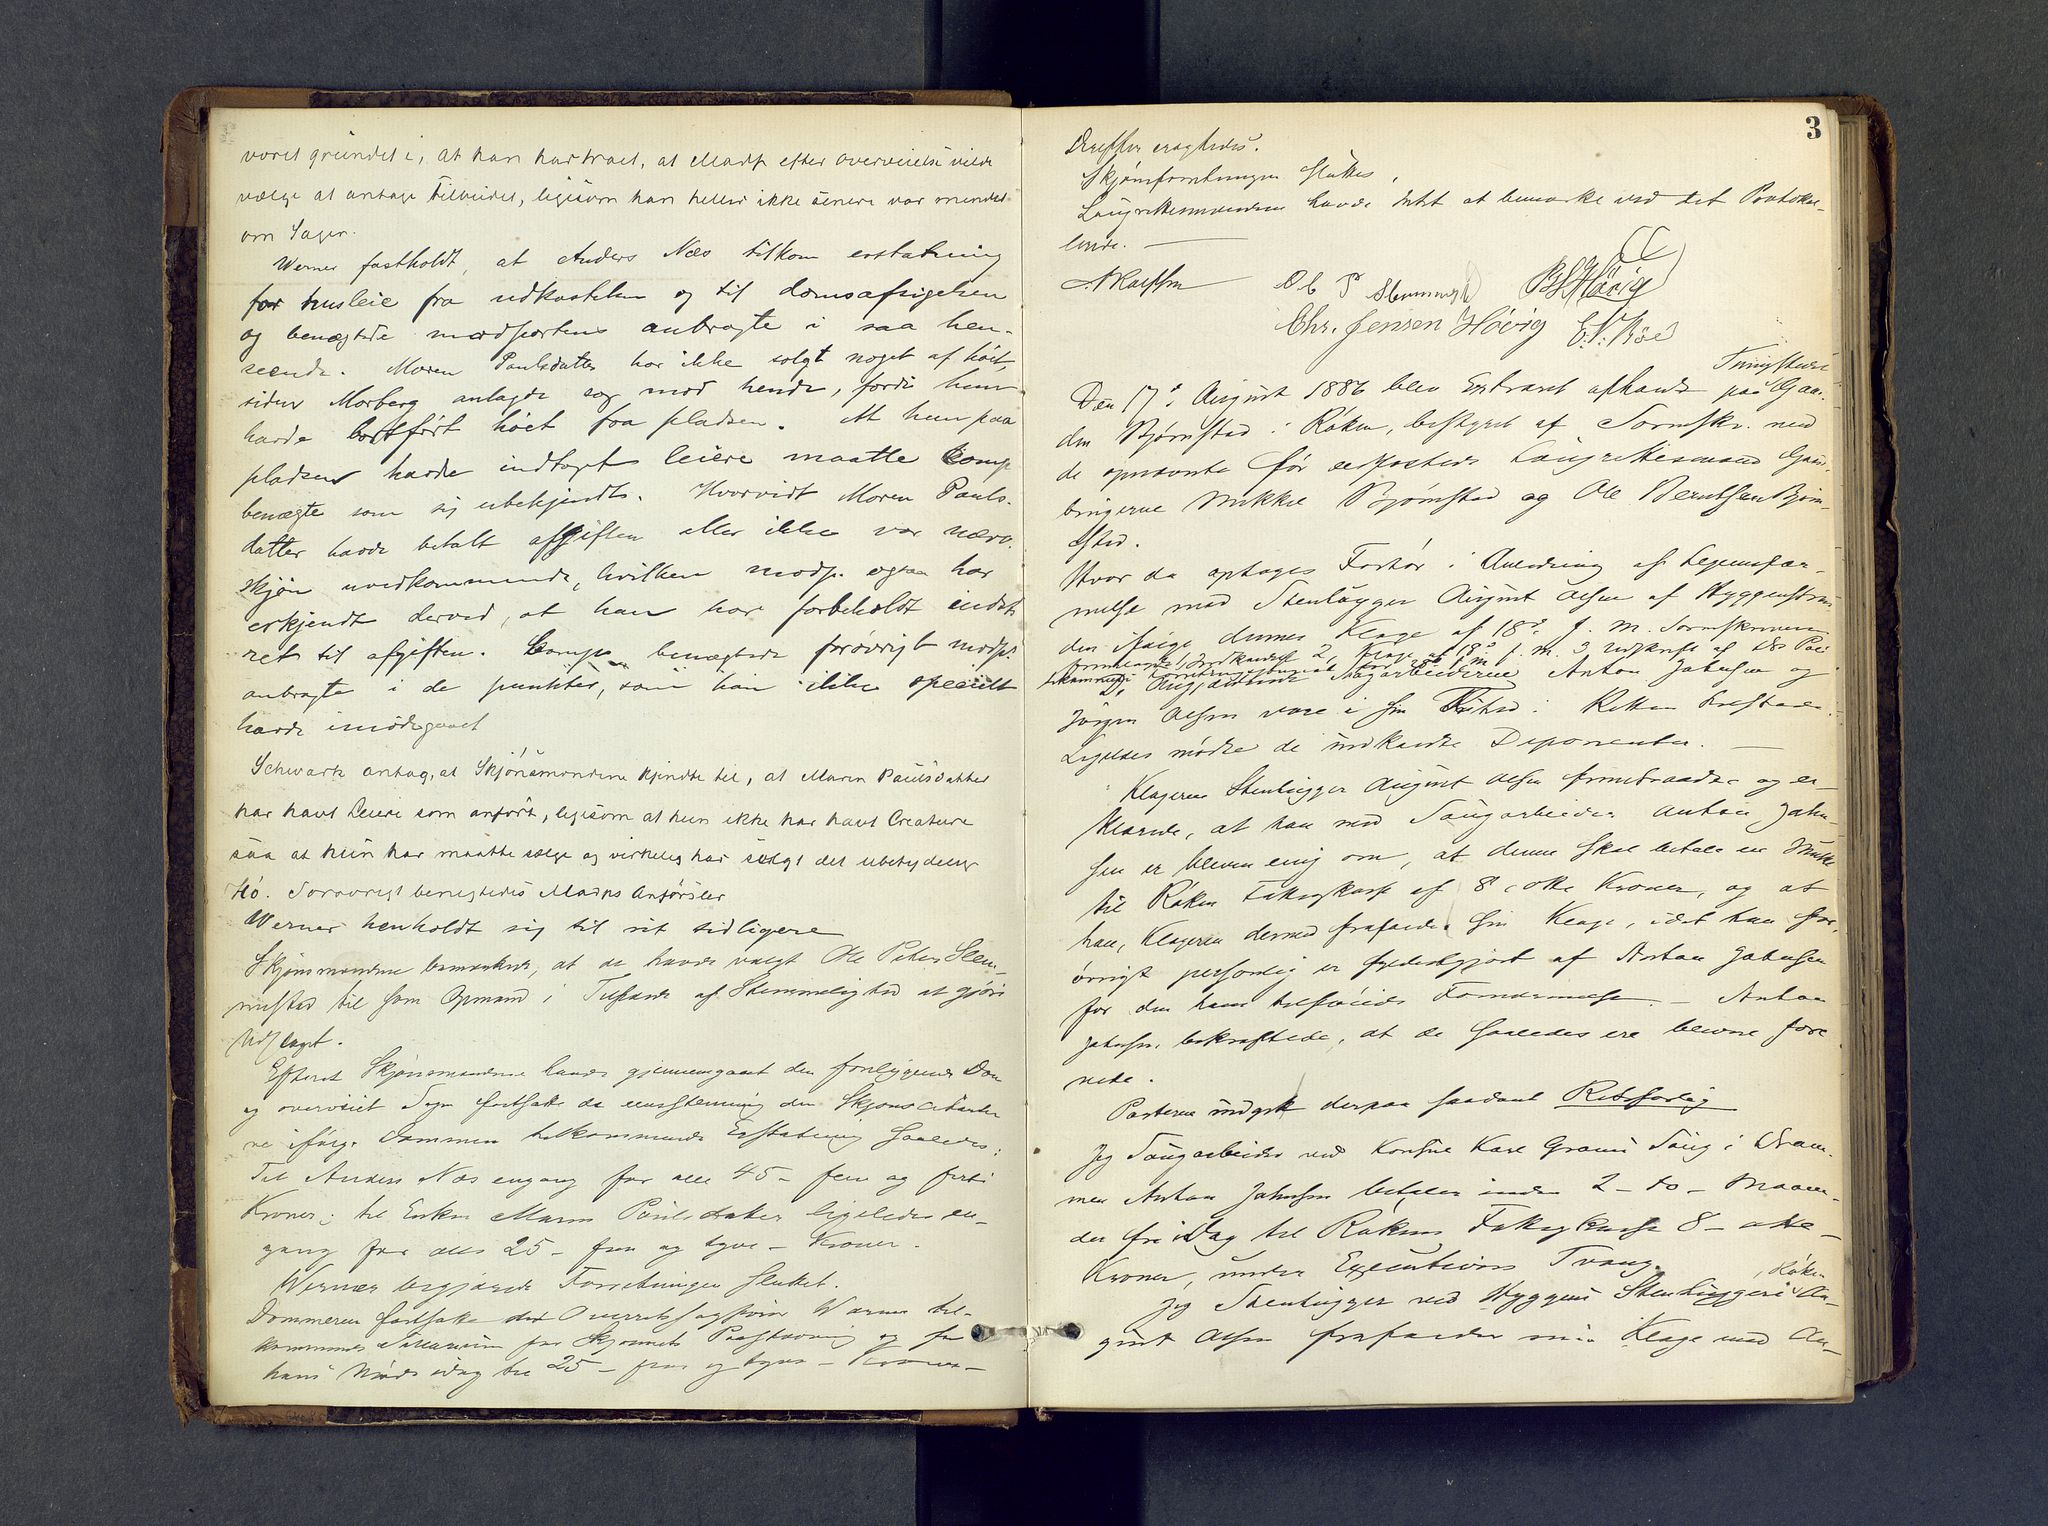 været grundet i, at han har troet, at Madp efter overveielse vilde
vælge at antage Tilbudet, ligesom han heller ikke senere var mindet
om Sagen.
Werner fastholdt, at Anders Næs tilkom erstatning
for husleie fra udkastelsen og til domsafsigelsen
og benægtede modpartens anbragte i saa hen-
seende. Maren Paulsdatter har ikke solgt noget af höet,
siden Morberg anlagde sag mod hende, fordi hun
havde bortført höet fra pladsen. At hun paa
pladsen havde indtaget leiere maatte Comp
benægte som sig ubekjendt. Hvorvidt Maren Pauls-
datter havde betalt afgiften eller ikke var nærv.
skjön uvedkommende, hvilken modp. ogsaa har
erkjendt derved, at han har forbeholdt indst
ret til afgiften. Comp benægtede forövrigt modps
anbragte i de punkter, som han ikke specielt
havde imødegaaet
Schwartz antog, at Skjönsmændene kjendte til, at Maren Paulsdatter
har havt Leiere som anført, ligesom at hun ikke har havt Creature
saa at hun har maatte sælge og virkelig har solgt det ubetydelige
Hö. Forøvrigt benegtedes Madps Anførsler
Werner henholdt sig til sit tidligere
Skjønsmændene bemærkede, at de havde valgt Ole Peter Stem-
nestad til som Opmand i Tilfælde af Stemmelighed at gjøre
Udslaget.
Efterat Skjønsmændene havde gjennemgaaet den foreliggende Dom
og overveiet Sagen fastsatte de eenstemmig den Skjøns
ne ifølge Dommen tilkommende Erstatning saaledes:
Til Anders Næs engang for alle 45 – fem og firti
Kroner; til Enken Maren Paulsdatter ligeledes en-
gang for alle 25 – fem og tyve – Kroner.
Werner begjærede Forretningen sluttet.
Dommeren fastsatte det Overretssagfører Werner til-
kommende Salarium for Skjønnets Paastævning og for
hans Møde idag til 25 – fem og tyve – Kroner –
3
Derefter eragtedes:
Skjønsforretningen sluttes.
Laugrettesmændene havde Intet at bemærke ved det Protokol-
lerede. —
Ole P Stemnestad BS Hövig
Chr. Jensen Hövig E. N. Böe
Den 17de August 1886 blev Extraret afholdt paa Gaar-
den Bjørnstad i Røken, bestyret af Sorenskr. med
de opnævnte før eedfæstede Laugrettesmænd Gaard-
brugerne Mikkel Bjørnstad og Ole Berntsen Bjørn-
stad.
Hvor da optages Forhør i Anledning af Legemsfor-
nelse mod Stenhugger August Olsen af Hyggenstran-
den ifølge dennes Klage af 18de f. M. Sorenskriveren
De Sagarbeiderne Anton Jakobsen og
Jørgen Olsen vare i fri Tilstand i Retten tilstede.
Ligeledes mødte de indkaldte Deponenter. —
Klageren Stenhugger August Olsen fremtraadte og er-
klærede, at han med Sagarbeider Anton Jakob-
sen er bleven enig om, at denne skal betale en Mulkt
til Røken Fattigkasse af 8, otte Kroner, og at
han, Klageren dermed frafalder sin Klage, idet han for-
øvrigt personlig er fyldestgjort af Anton Jakobsen
for den ham tilføiede Fornærmelse. – Anton
Jakobsen bekræftede, at de saaledes ere blevne fore
nede.
Parterne indgik derpaa saadant Retsforlig
Jeg Sagarbeider ved Konsul Karl Grams Sag i Dram-
men Anton Jakobsen betaler inden 2 – to – Maane-
der fra i Dag til Røkens Fattigkasse 8 – otte –
Kroner, under Executions Tvang.
Jeg Stenhugger ved Hyggens Stenhuggeri i Røken Au-
gust Olsen frafalder min Klage mod An-